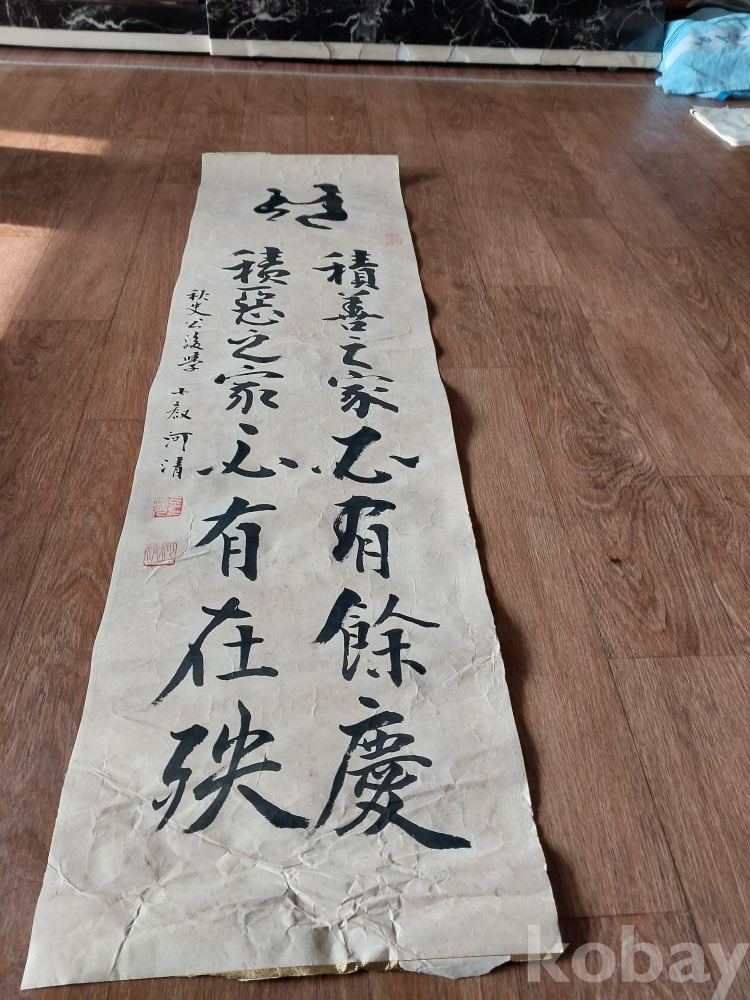 積善之家必有餘慶
積惡之家必有在殃
秋史公後學 七叔 河清
kobay